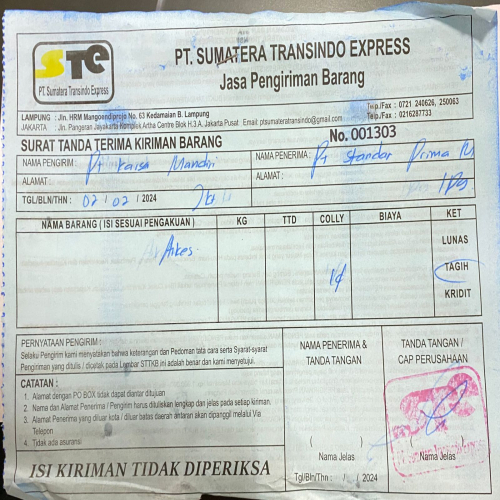 STE
PT. Sumatera Transindo Express
PT. SUMATERA TRANSINDO EXPRESS
Jasa Pengiriman Barang
LAMPUNG : Jln. HRM Mangoendiprojo No. 63 Kedamaian B. Lampung Telp./Fax : 0721 240626, 250063
JAKARTA : Jln. Pangeran Jayakarta Komplek Artha Centre Blok H.3.A. Jakarta Pusat Email: ptsumateratransindo@gmail.com Telp./Fax : 0216287733
SURAT TANDA TERIMA KIRIMAN BARANG No. 001303
NAMA PENGIRIM : Pt Kaisa Mandiri
NAMA PENERIMA : Pt Standar Prima
ALAMAT :
ALAMAT :
TGL/BLN/THN : 02 / 02 / 2024
NAMA BARANG ( ISI SESUAI PENGAKUAN ) KG TTD COLLY BIAYA KET
Alkes
LUNAS
TAGIH
KRIDIT
PERNYATAAN PENGIRIM :
Selaku Pengirim kami menyatakan bahwa keterangan dan Pedoman tata cara serta Syarat-syarat
Pengiriman yang ditulis / dicetak pada Lembar STTKB ini adalah benar dan kami menyetujui.
CATATAN :
1. Alamat dengan PO BOX tidak dapat diantar ditujuan
2. Nama dan Alamat Penerima / Pengirim harus dituliskan lengkap dan jelas pada setiap kiriman.
3. Alamat Penerima yang diluar kota / diluar batas daerah antaran akan dipanggil melalui Via
Telepon
4. Tidak ada asuransi
ISI KIRIMAN TIDAK DIPERIKSA
NAMA PENERIMA &
TANDA TANGAN
( )
Nama Jelas
Tgl/Bln/Thn : / / 2024
TANDA TANGAN /
CAP PERUSAHAAN
( )
Nama Jelas